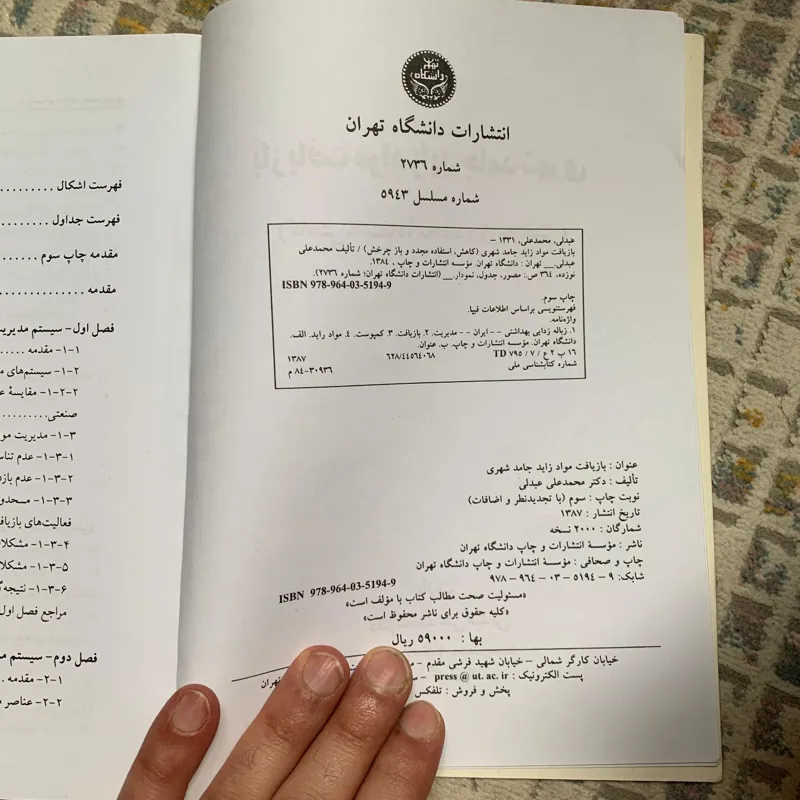 انتشارات دانشگاه تهران
شماره ۲۷۳۶
شماره مسلسل ۵۹۴۳
عبدلی، محمدعلی، ۱۳۳۱ –
بازیافت مواد زاید جامد شهری (کاهش، استفاده مجدد و باز چرخش) / تألیف محمدعلی
عبدلی.__ تهران : دانشگاه تهران. مؤسسه انتشارات و چاپ ، ۱۳۸٤.
نوزده، ۳٦٤ ص.: مصور، جدول، نمودار.__ (انتشارات دانشگاه تهران؛ شماره ۲۷۳٦).
ISBN 978-964-03-5194-9
چاپ سوم.
فهرستنویسی براساس اطلاعات فیپا.
واژه‌نامه.
۱. زباله زدایی بهداشتی -- ایران -- مدیریت. ۲. بازیافت. ۳. کمپوست. ٤. مواد راید. الف.
دانشگاه تهران. مؤسسه انتشارات و چاپ. ب. عنوان.
۱٦ ب ۲ ع / ۷ / ۷۹۵ TD ۶۲۸/۴۴۵۶۴۰۶۸ ۱۳۸۷
شماره کتابشناسی ملی ۸٤-۳۰۹۳٦ م
عنوان : بازیافت مواد زاید جامد شهری
تألیف : دکتر محمدعلی عبدلی
نوبت چاپ : سوم (با تجدیدنظر و اضافات)
تاریخ انتشار : ۱۳۸۷
شمارگان : ۲۰۰۰ نسخه
ناشر : مؤسسهٔ انتشارات و چاپ دانشگاه تهران
چاپ و صحافی : مؤسسهٔ انتشارات و چاپ دانشگاه تهران
شابک: ۹ – ۵۱۹۴ – ۰۳ – ۹۶۴ – ۹۷۸
ISBN 978-964-03-5194-9
«مسئولیت صحت مطالب کتاب با مؤلف است»
«کلیه حقوق برای ناشر محفوظ است»
بها : ۵۹۰۰۰ ریال
خیابان کارگر شمالی – خیابان شهید فرشی مقدم –
پست الکترونیک : press @ ut. ac. ir – تهران
پخش و فروش : تلفکس
فهرست اشکال ..........
فهرست جداول ..........
مقدمه چاپ سوم .......
مقدمه ...............
فصل اول- سیستم مدیریت
۱-۱- مقدمه .....
۲-۱- سیستم‌های
۲-۲-۱- مقایسهٔ
صنعتی..........
۳-۱- مدیریت
۱-۳-۱- عدم
۲-۳-۱- عدم
۳-۳-۱-
فعالیت‌های
۴-۳-۱-
۵-۳-۱-
۶-۳-۱-
مراجع فصل اول
فصل دوم- سیستم
۱-۲- مقدمه ..
۲-۲- عناصر